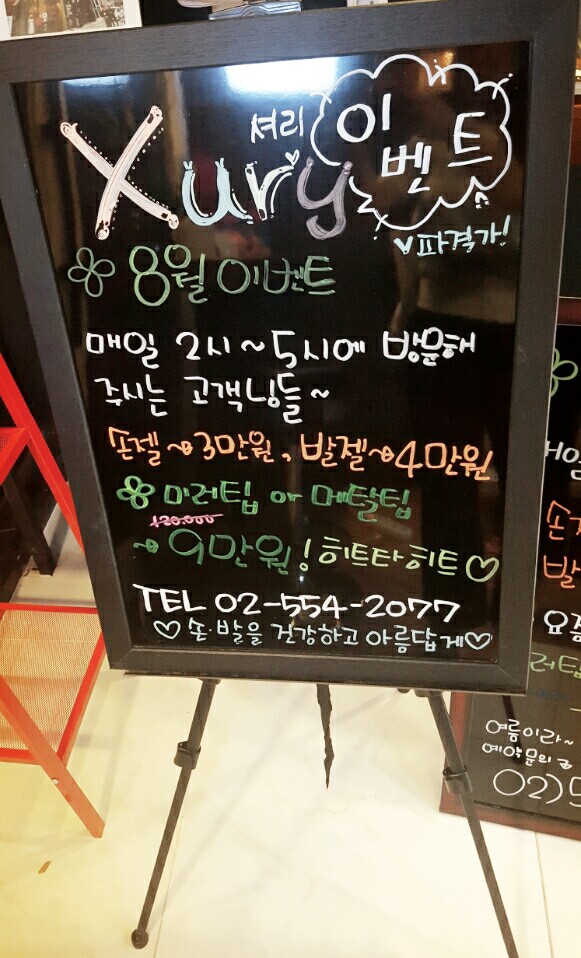 셔리
Xury
이벤트
파격가!
8월 이벤트
매일 2시~5시에 방문해
주시는 고객님들~
손젤→3만원, 발젤→4만원
미러팁 or 메탈팁
120.000
→9만원! 히트다히트♡
TEL 02-554-2077
♡손·발을 건강하고 아름답게♡
여름이라~
예약문의
02)5